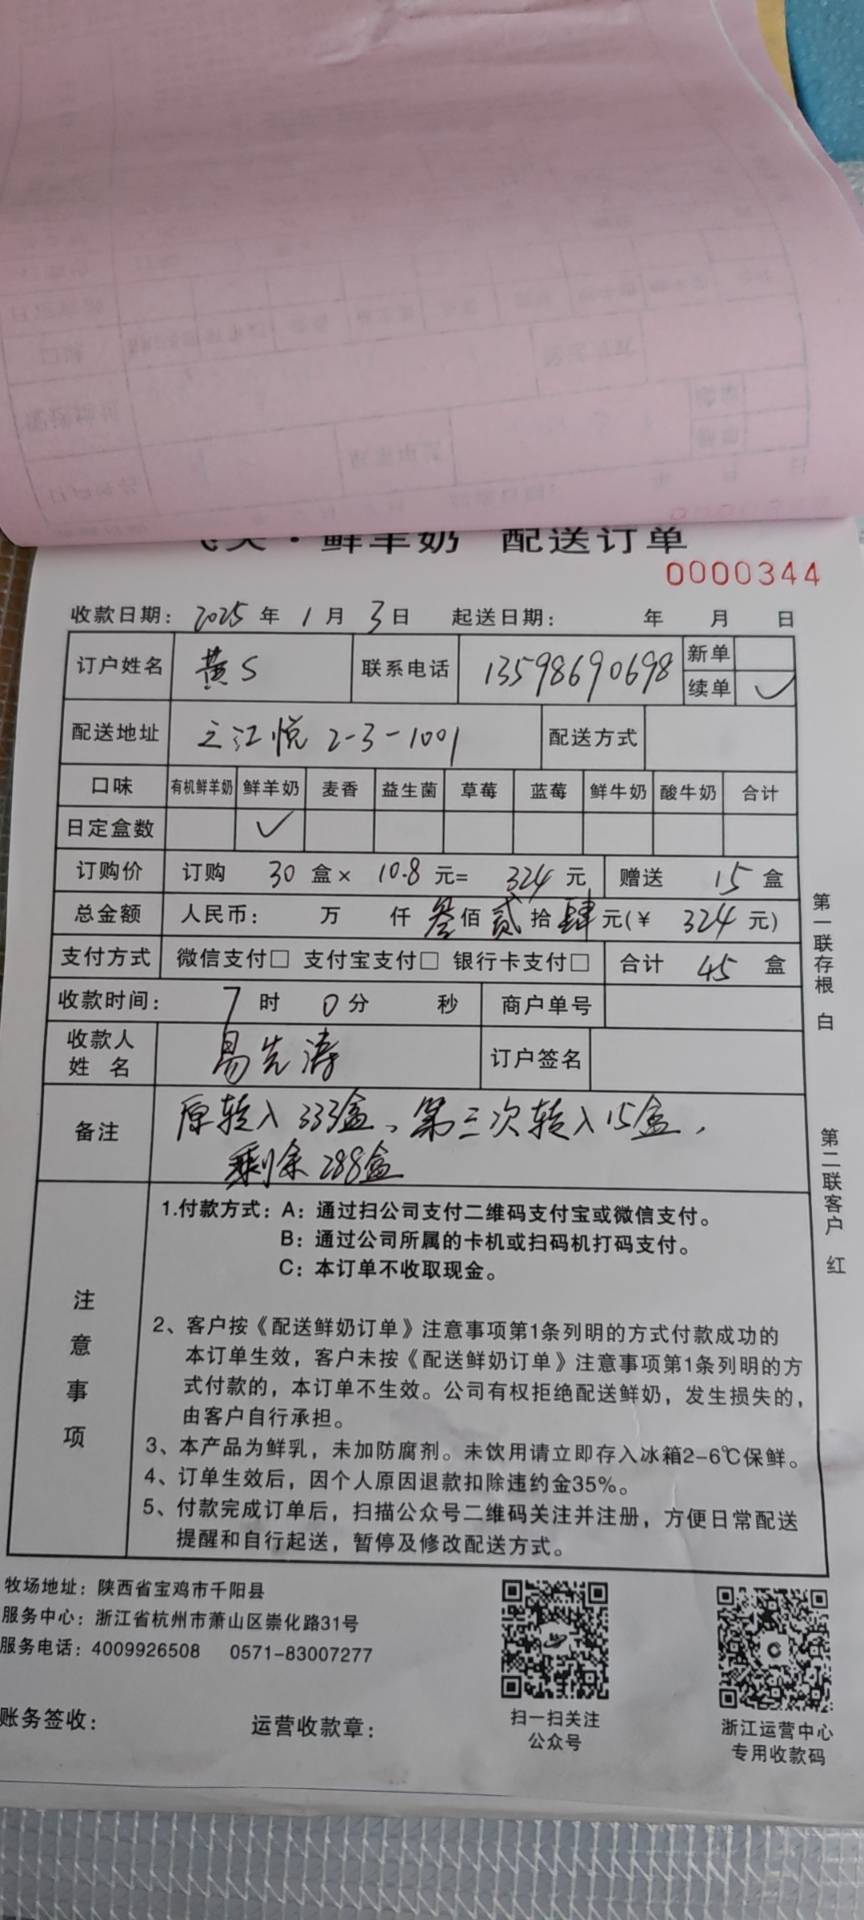 飞天·鲜羊奶 配送订单
0000344
收款日期: 2025 年 1 月 3 日 起送日期: 年 月 日
订户姓名 黄S 联系电话 13598690698 新单
续单 ✓
配送地址 之江悦 2-3-1001 配送方式
口味 有机鲜羊奶 鲜羊奶 麦香 益生菌 草莓 蓝莓 鲜牛奶 酸牛奶 合计
日定盒数 ✓
订购价 订购 30 盒× 10.8 元= 324 元 赠送 15 盒
总金额 人民币: 万 仟 叁佰 贰拾 肆元(¥ 324 元)
支付方式 微信支付□ 支付宝支付□ 银行卡支付□ 合计 45 盒
收款时间: 7 时 0 分 秒 商户单号
收款人姓名 易先涛 订户签名
备注 原转入333盒、第三次转入15盒,
剩余288盒
注意事项
1.付款方式: A: 通过扫公司支付二维码支付宝或微信支付。
B: 通过公司所属的卡机或扫码机打码支付。
C: 本订单不收取现金。
2、客户按《配送鲜奶订单》注意事项第1条列明的方式付款成功的
本订单生效,客户未按《配送鲜奶订单》注意事项第1条列明的方
式付款的,本订单不生效。公司有权拒绝配送鲜奶,发生损失的,
由客户自行承担。
3、本产品为鲜乳,未加防腐剂。未饮用请立即存入冰箱2-6℃保鲜。
4、订单生效后,因个人原因退款扣除违约金35%。
5、付款完成订单后,扫描公众号二维码关注并注册,方便日常配送
提醒和自行起送,暂停及修改配送方式。
第一联存根 白
第二联客户 红
牧场地址: 陕西省宝鸡市千阳县
服务中心: 浙江省杭州市萧山区崇化路31号
服务电话: 4009926508 0571-83007277
账务签收: 运营收款章:
扫一扫关注
公众号
浙江运营中心
专用收款码